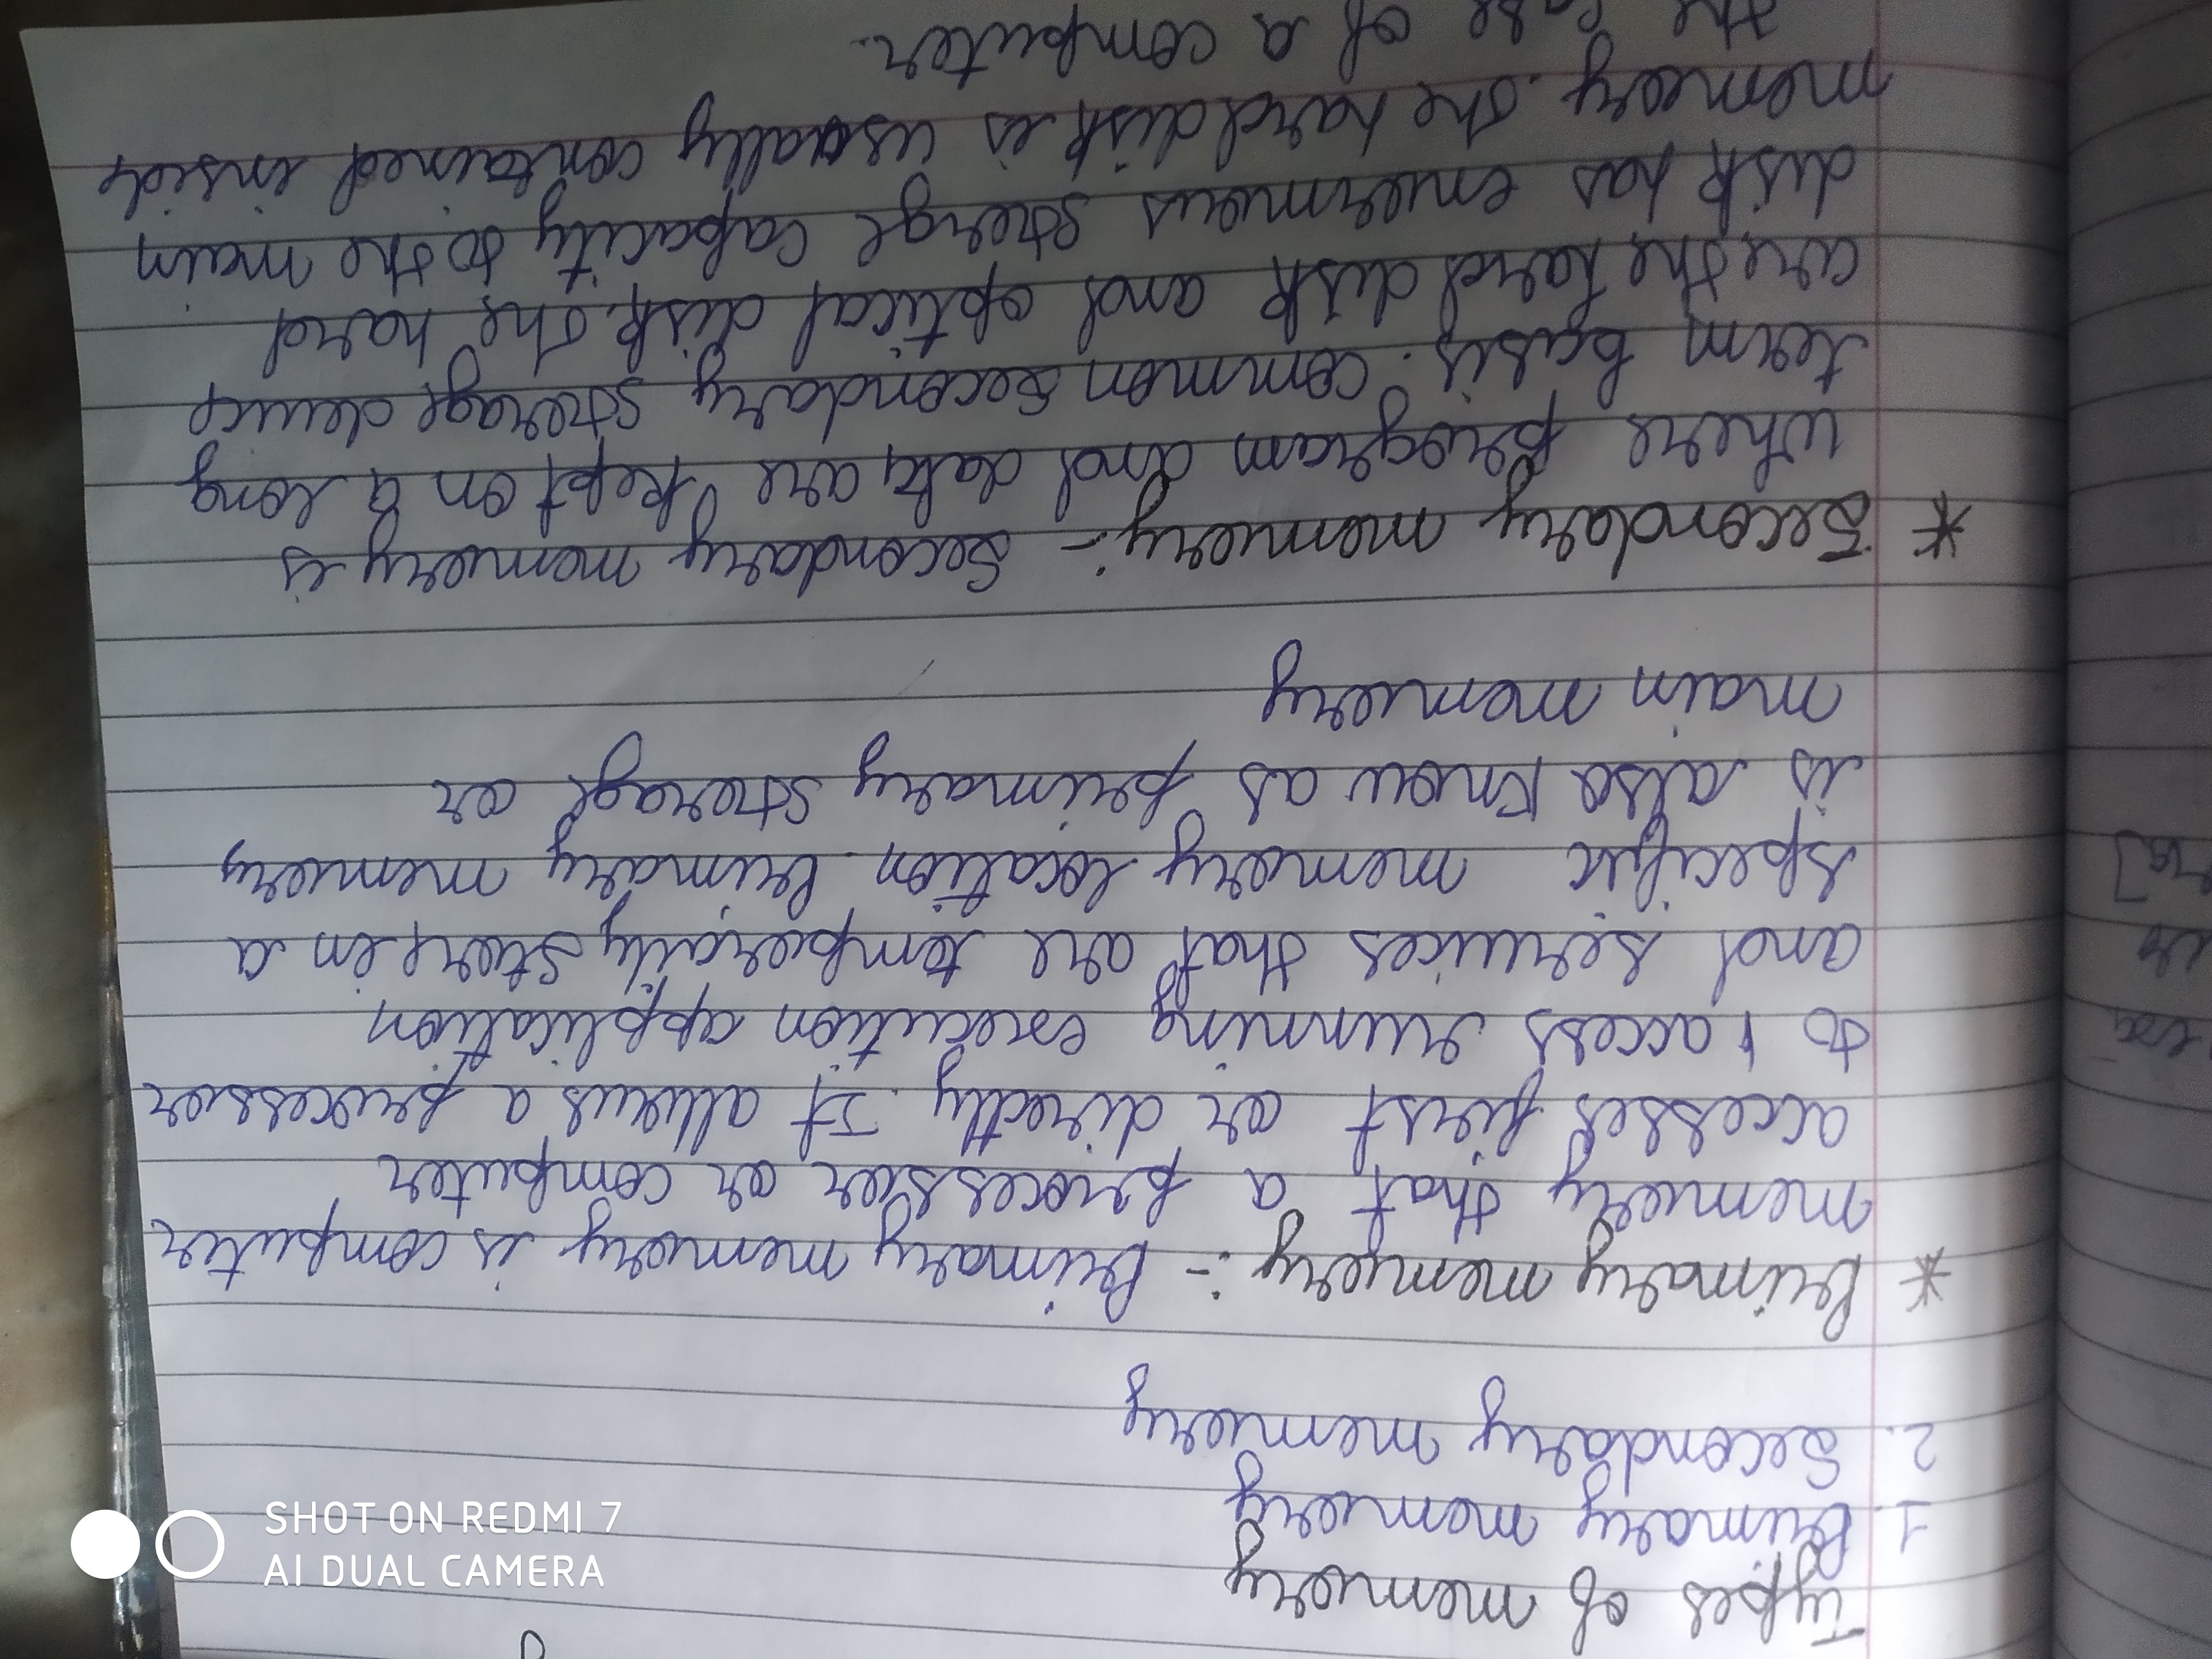 Types of memory
1. Primary memory
2. Secondary memory
* Primary memory :- Primary memory is computer
memory that a processor or computer
accesses first or directly. It allows a processor
to access running execution application
and services that are temporarily store in a
specific memory location. Primary memory
is also know as primary storage or
main memory
* Secondary memory :- Secondary memory is
where program and data are kept on a long
term basis. common secondary storage device
are the hard disk and optical disk. The hard
disk has enormous storge capacity to the main
memory. The hard disk is usually contained inside
the case of a computer.
SHOT ON REDMI 7
AI DUAL CAMERA